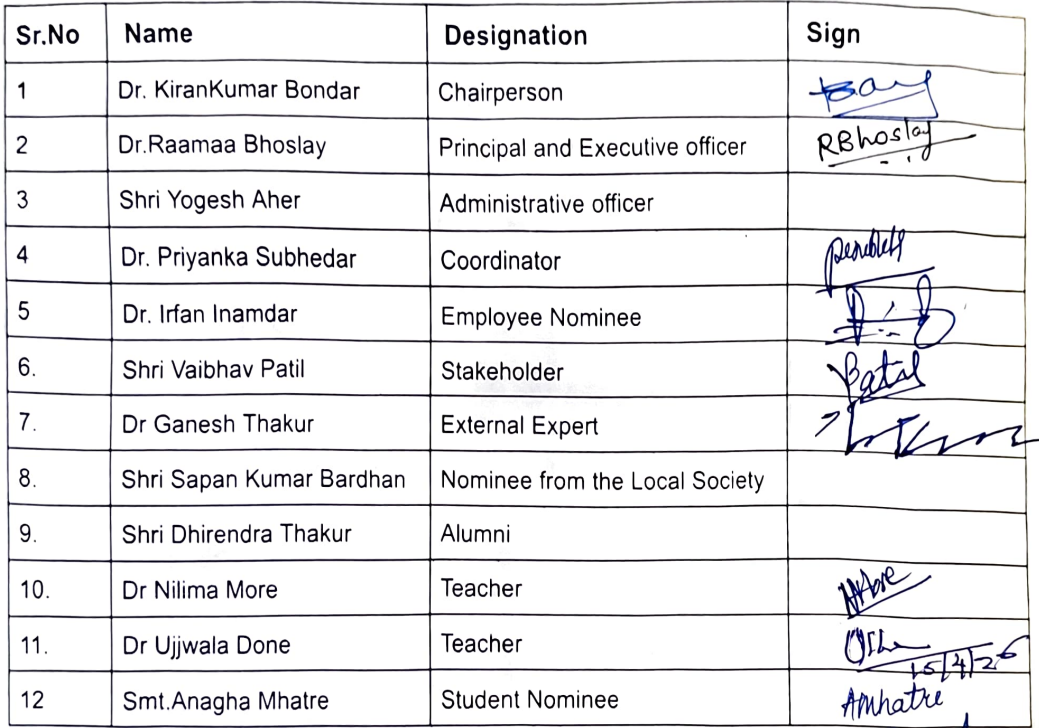 Sr.No Name Designation Sign
1 Dr. KiranKumar Bondar Chairperson
2 Dr.Raamaa Bhoslay Principal and Executive officer RBhoslay
3 Shri Yogesh Aher Administrative officer
4 Dr. Priyanka Subhedar Coordinator
5 Dr. Irfan Inamdar Employee Nominee
6. Shri Vaibhav Patil Stakeholder
7. Dr Ganesh Thakur External Expert
8. Shri Sapan Kumar Bardhan Nominee from the Local Society
9. Shri Dhirendra Thakur Alumni
10. Dr Nilima More Teacher
11. Dr Ujjwala Done Teacher 15/4/26
12 Smt.Anagha Mhatre Student Nominee AMhatre